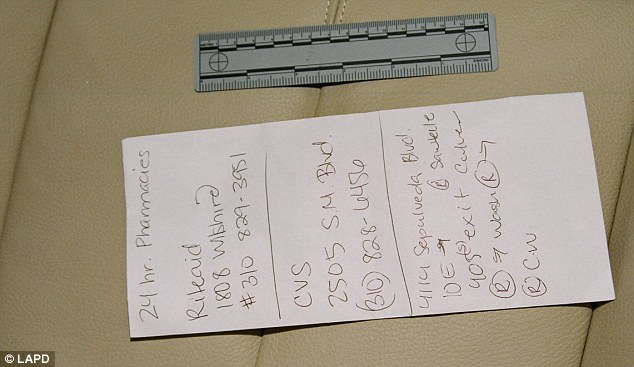 24 hr. Pharmacies
Riteaid
1808 Wilshire
# 310 829-3951
CVS
2505 S.M. Blvd.
(310) 828-6456
Sepulveda Blvd.
10 E → @ Sawtelle
405 @ exit Culver
(R) → Wash (R) →
(R) CW
© LAPD